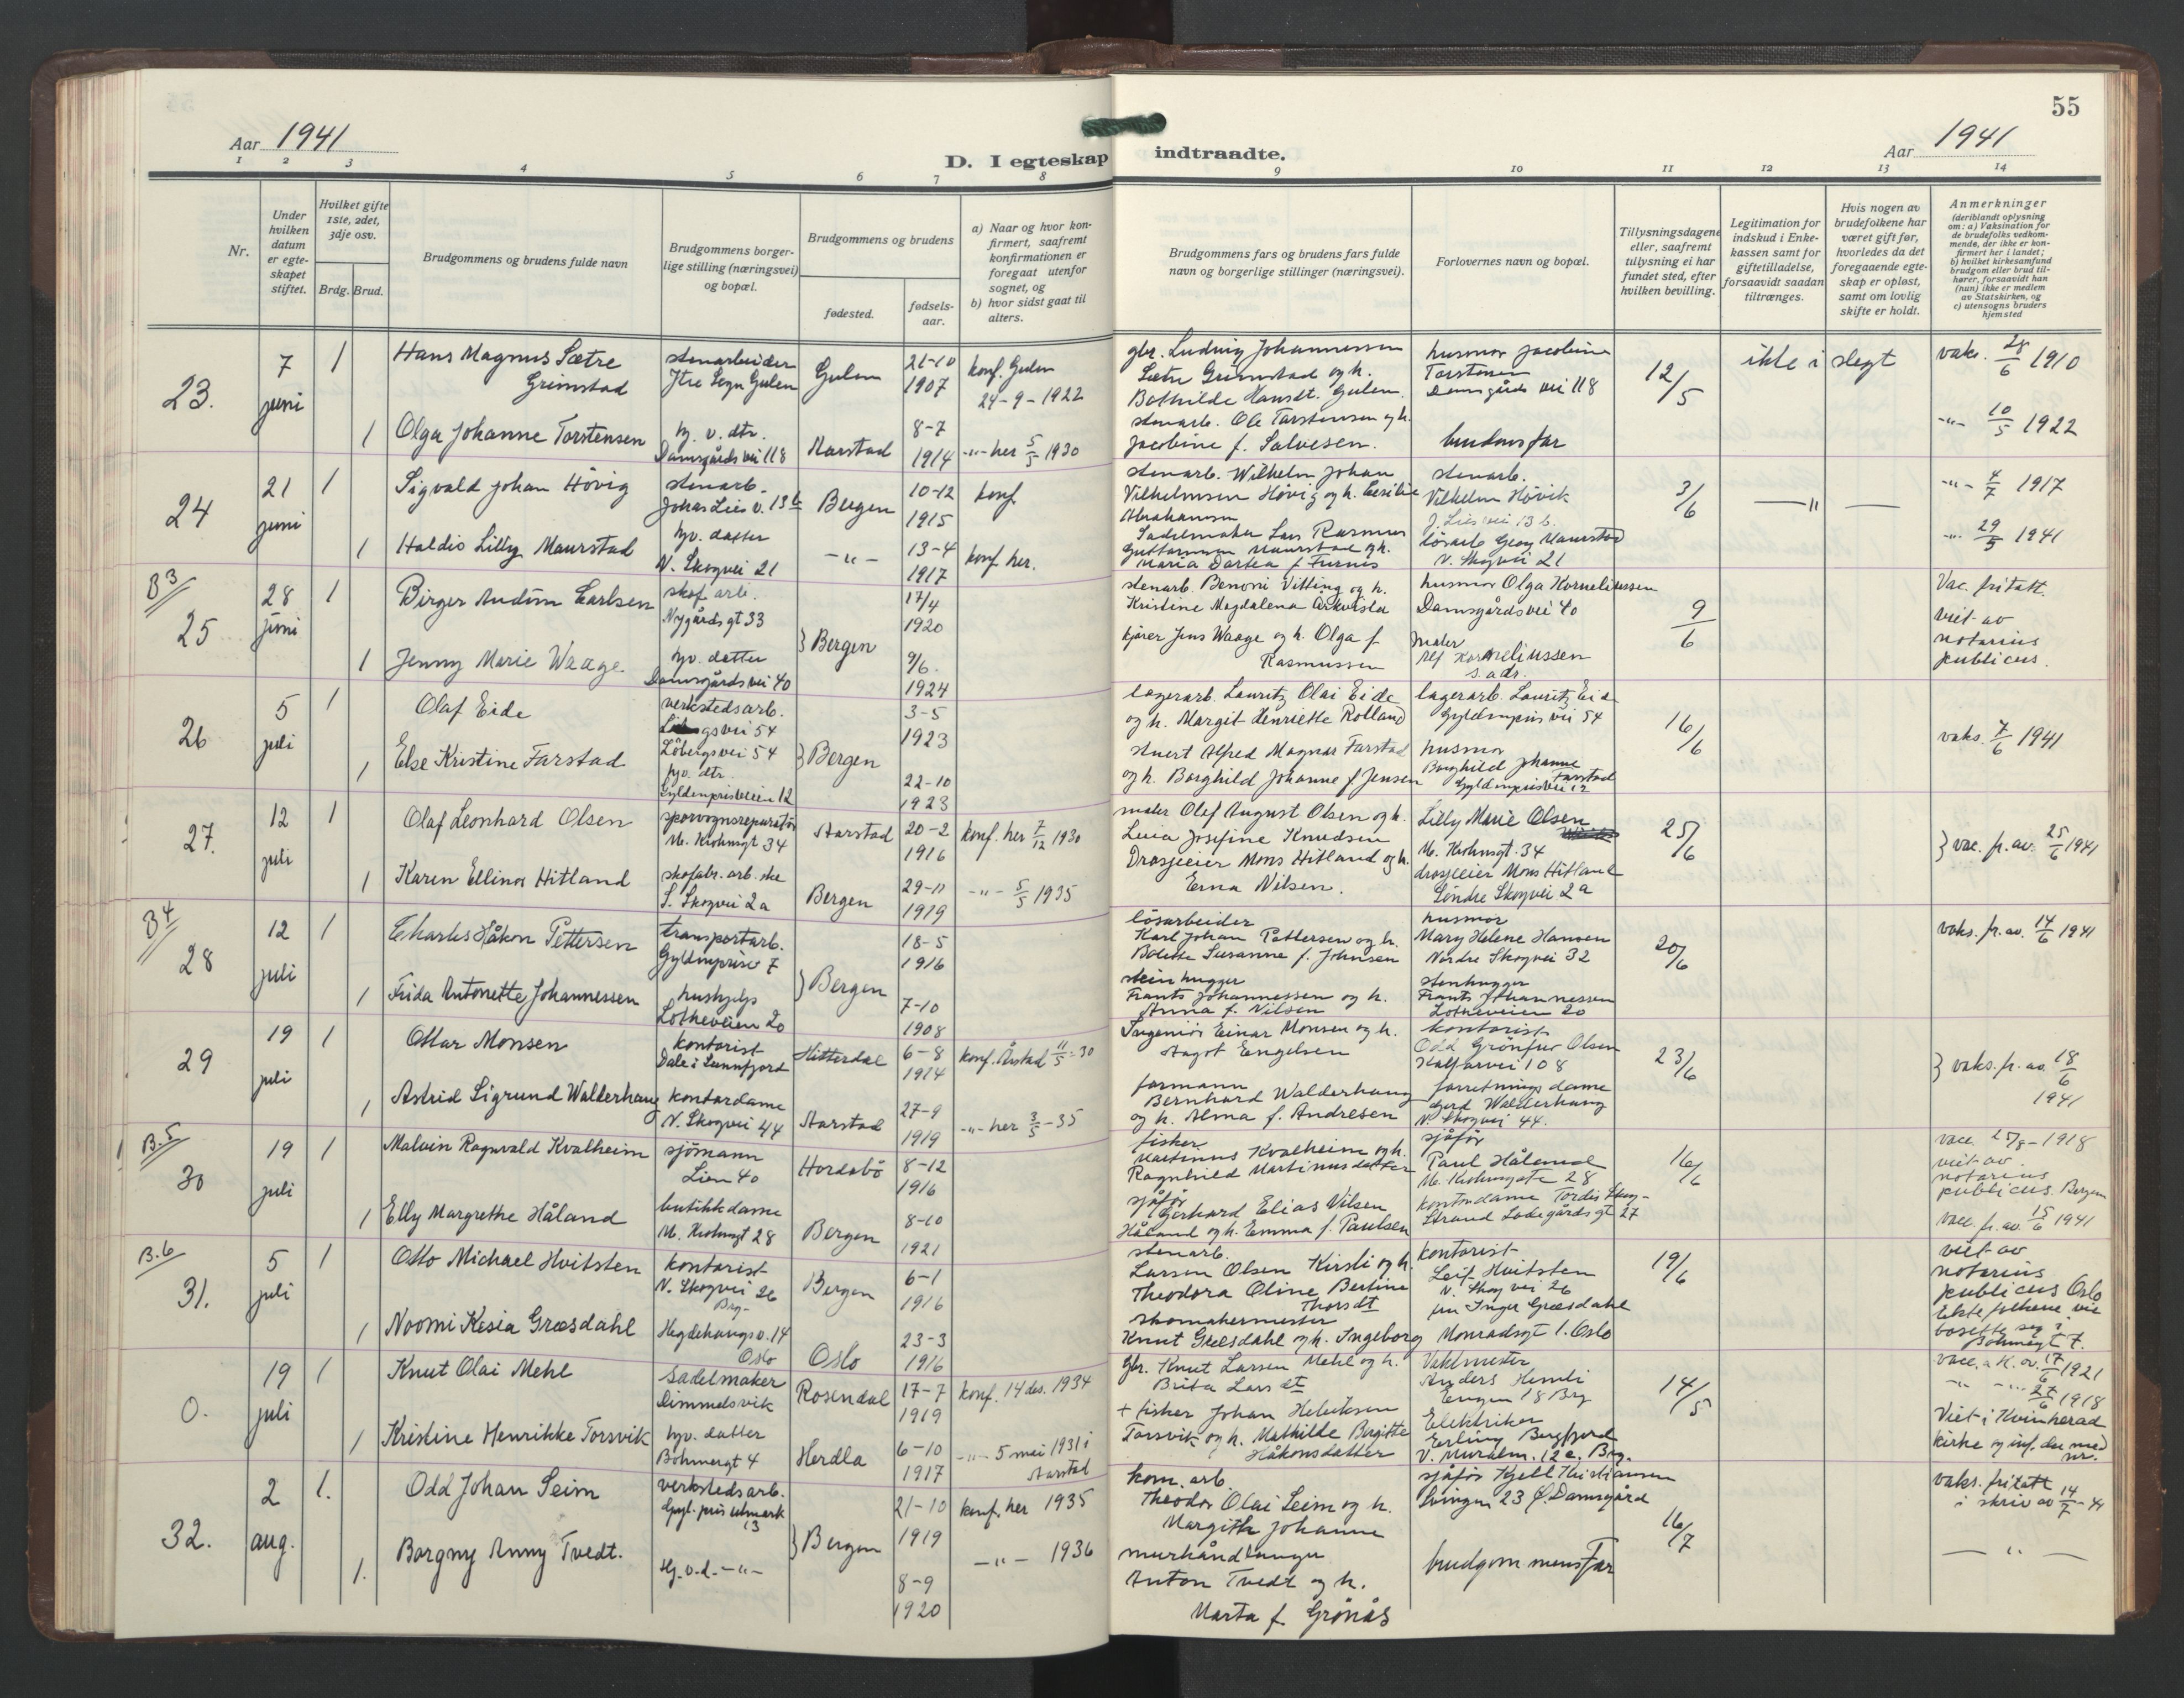 55
Aar 1941
D. I egteskap indtraadte.
Aar 1941
1 2 3 4 5 6 7 8 9 10 11 12 13 14
Nr.
Under hvilken datum er egteskapet stiftet.
Hvilket gifte 1ste, 2det, 3dje osv.
Brdg. Brud.
Brudgommens og brudens fulde navn
Brudgommens borgerlige stilling (næringsvei) og bopæl.
Brudgommens og brudens
fødested.
fødselsaar.
a) Naar og hvor konfirmert, saafremt konfirmationen er foregaat utenfor sognet, og
b) hvor sidst gaat til alters.
Brudgommens fars og brudens fars fulde navn og borgerlige stillinger (næringsvei).
Forlovernes navn og bopæl.
Tillysningsdagene eller, saafremt tillysning ei har fundet sted, efter hvilken bevilling.
Legitimation for indskud i Enkekassen samt for giftetilladelse, forsaavidt saadan tiltrænges.
Hvis nogen av brudefolkene har været gift før, hvorledes da det foregaaende egteskap er opløst, samt om lovlig skifte er holdt.
Anmerkninger
(deriblandt oplysning om: a) Vaksination for de brudefolks vedkommende, der ikke er konfirmert her i landet; b) hvilket kirkesamfund brudgom eller brud tilhører, forsaavidt han (hun) ikke er medlem av Statskirken, og c) utensogns bruders hjemsted
23. 7 juni 1 Hans Magnus Sætre Grimstad
stenarbeider Ytre Sogn Gulen
Gulen 21-10 1907
konf. Gulen 24-9-1922
gbr. Ludvig Johannessen Sætre Grimstad og h. Bothilde Hansdt. Gulen
husmor Jacobine Torstensen Damsgårds vei 118
12/5
ikke i slegt
vaks. 28/6 1910
1 Olga Johanne Torstensen
hj. v. dtr. Damsgårds vei 118
Aarstad 8-7 1914
-"- her 5/5 1930
stenarb. Ole Torstensen og h. Jacobine f. Salvesen.
brudens far
-"- 10/5 1922
24 21 juni 1 Sigvald Johan Hövig
stenarb. Jonas Lies v. 13 b
Bergen 10-12 1915
konf.
stenarb. Wilhelm Johan Vilhelmsen Hövig og h. Cecilie Abrahamsen
stenarb. Vilhelm Hövik J. Lies vei 13 b.
3/6
— " —
-"- 4/7 1917
1 Haldis Lilly Maurstad
hjv. datter N. Skogvei 21
-"- 13-4 1917
konf. her.
Sadelmaker Lars Rasmus Guttormsen Maurstad og h. Maria Dortea f. Furnis
lösarb. Georg Maurstad N. Skogvei 21
-"- 29/5 1941
B 3/
25 28 juni 1 Birger Audun Carlsen
skof. arb. Nygårdsgt 33
} Bergen 17/4 1920
stenarb. Benoni Vitting og h. Kristine Magdalena
husmor Olga Korneliussen Damsgårdsvei 40
9/6
Vac. fritatt. viet av notarius publicus.
1 Jenny Marie Waage.
hjv. datter Damsgårdsvei 40
9/6. 1924
kjører Jens Waage og h. Olga f. Rasmussen
maler Alf Korneliussen s. adr.
26 5 juli 1 Olaf Eide
verkstedsarb. Löbergsvei 54
} Bergen 3-5 1923
lagerarb. Lauritz Olai Eide og h. Margit Henriette Rolland
lagerarb. Lauritz Eide Gyldenpris vei 54
16/6
vaks. 7/6 1941
1 Else Kristine Farstad
hjv. dtr. Gyldenprisveien 12
22-10 1923
stuert Alfred Magnus Farstad og h. Borghild Johanne f Jensen
husmor Borghild Johanne Farstad Gyldenprisvei 12
27. 12 juli 1 Olaf Leonhard Olsen
sporvognsreparatör M. Krohnsgt 34
Aarstad 20-2 1916
konf. her 7/12 1930
maler Olef August Olsen og h. Josefine Knudsen
Lilly Marie Olsen M. Krohnsgt. 34
25/6
} vac. fr. av. 25/6 1941
1 Karen Ellinor Hitland
skofabr. arb.ske S. Skogvei 2a
Bergen 29-11 1919
-"- 5/5 1935
Drosjeeier Mons Hitland og h. Erna Nilsen.
drosjeeier Mons Hitland Söndre Skogvei 2a
B 4/
28 12 juli 1 Charles Håkon Pettersen
transportarb. Gyldenpriso 7
} Bergen 18-5 1916
lösarbeider Karl Johan Pettersen og h. Bolette Susanne f. Johnsen
husmor Mary Helene Hansen Nordre Skogvei 32
20/6
vaks. fr. av. 14/6 1941
1 Frida Antonette Johannessen
hushjelp Lotheveien 20
7-10 1908
steinhugger Frants Johannessen og h. Anna f. Nilsen
stenhugger Frants Johannessen Lotheveien 20
29 19 juli 1 Ottar Monsen
kontorist Dale i Sunnfjord
Hitterdal 6-8 1914
konf. Årstad 11/5-30
Ingeniör Einar Monsen og h. Aagot Engelsen
kontorist Odd Olsen Kalfarvei 108
23/6
} vaks. fr. av. 18/6 1941
1 Astrid Sigrund Walderhaug
kontordame N. Skogvei 44
Aarstad 27-9 1919
-"- her 3/5-35
formann Bernhard Walderhaug og h. Alma f. Andresen
forretningsdame Gerd Walderhaug N. Skogvei 44.
B. 5
30 19 juli 1 Malvin Ragnvald Kvalheim
sjömann Lien 40
Hordabö 8-12 1916
fisker Martinus Kvalheim og h. Ragnhild Martinusdatter
sjåför Paul Håland M. Krohnsgate 28
16/6
vacc. 25/8-1918 viet av notarius publicus Bergen
1 Elly Margrethe Håland
butikkdame M. Krohnsgt 28
Bergen 8-10 1921
sjåför Gerhard Elias Nilsen Håland og h. Emma f. Paulsen
kontordame Tordis Strand Ladegårdsgt 27
vacc. fr. av. 15/6 1941
B. 6
31. 5 juli 1 Otto Michael Hvitsten
kontorist N. Skogvei 26 Brg-
Bergen 6-1 1916
stenarb. Larsen Olsen Kirsti og h. Theodora Oline Bertine Thorsdt
kontorist Leif Hvitsten N. Skogvei 26
19/6
viet av notarius publicus Oslo Ektefolkene vil bosette seg i Böhmergt 7.
1 Noomi Kesia Græsdahl
Hegdehaugsv. 14 Oslo
Oslo 23-3 1916
skomakermester Knut Græsdahl og h. Ingeborg
fru Inger Græsdahl Monradsgt 1. Oslo
0. 19 juli 1 Knut Olai Mehl
sadelmaker Dimmelsvik
Rosendal 17-7 1919
konf. 14 des. 1934
gbr. Knut Larsen Mehl og h. Brita Larsdt
Vaktmester Anders Hemli Engen 18 Brg
14/5
vacc. att. av. 17/6 1921
-"- -"- 27/6 1918
Viet i Kvinherad kirke og inf. der med nr.
1 Kristine Henrikke Torsvik
hjv. datter Böhmergt 4
Herdla 6-10 1917
-"- 5 mai 1931 i Aarstad
+ fisker Johan Henriksen Torsvik og h. Mathilde Birgitte Håkonsdatter
Elektriker Erling Bergfjord V. Muralm. 12 a. Brg.
32. 2 aug. 1. Odd Johan Seim
verkstedsarb. Gyl. pris utmark 13
} Bergen 21-10 1919
konf. her 1935
kom. arb. Theodor Olai Seim og h. Margith Johanne
sjåför Kjell Kristiansen Svingen 23 Ø. Damsgård
16/7
vaks. fritatt i skriv av 14/7-41
1. Borgny Anny Tvedt.
Hj. v. d. -"-
8-9 1920
-"- 1936
murhåndlanger Anton Tvedt og h. Marta f. Grönås
brudgommens Far
— " —